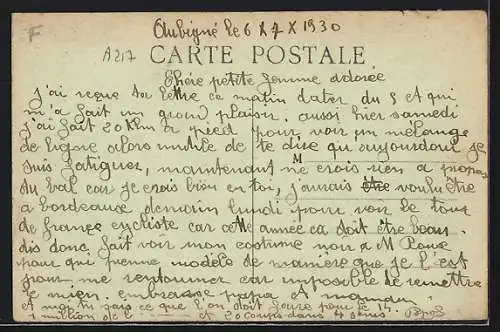 F
Aubigné le 6 X 7 X 1930
A217
CARTE POSTALE
Chère petite femme adorée
J'ai reçue ta lettre ce matin dater du 5 et qui
m'a fait un grand plaisir. aussi hier samedi
j'ai fait 20 Km à pied pour voir un mélange
de ligne alors inutile de te dire qu aujourdhui je
suis fatiguer, maintenant ne crois rien a propos
M
du bal car je crois bien en toi, j'aurais voulu être
a bordeaux demain lundi pour voir le tour
de france cycliste car cette année ca doit être beau.
dis donc fait voir mon costume noir a M Roux
pour qui prenne modèle de manière que je l'est
pour me retourner car impossible de remettre
le mien. embrasse papa et maman
et moi tu sais ce que l'on doit faire pour le 14.
1 million de et 20 coups dans 4 jours